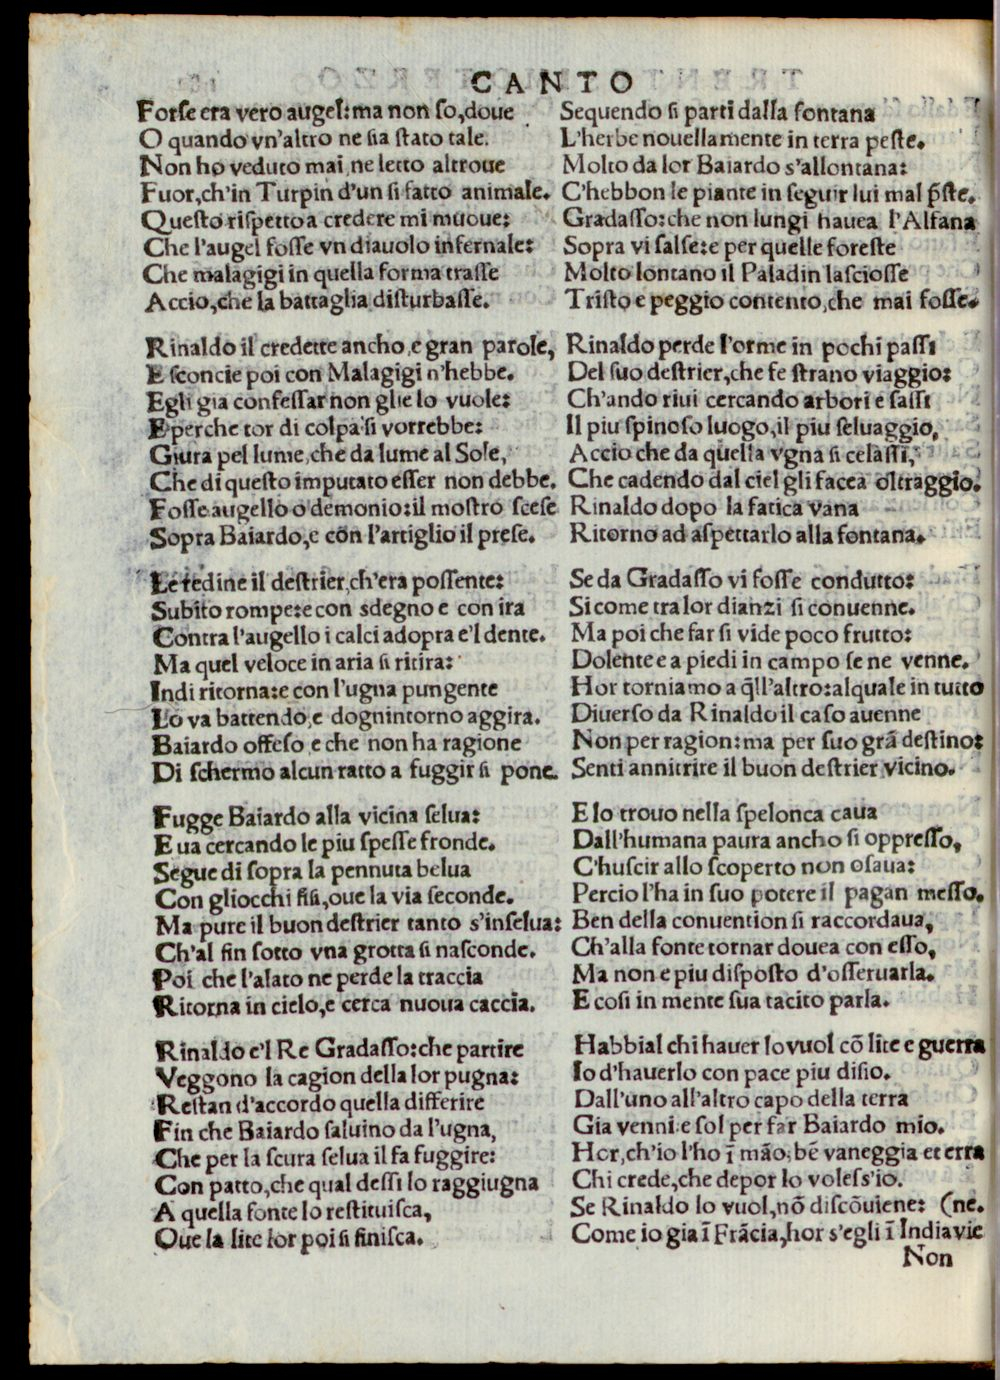 CANTO
Forse era vero augel: ma non so, doue
O quando vn'altro ne sia stato tale.
Non ho veduto mai, ne letto altroue
Fuor, ch'in Turpin d'un si fatto animale.
Questo rispetto a credere mi muoue:
Che l'augel fosse vn diauolo infernale:
Che malagigi in quella forma trasse
Accio, che la battaglia disturbasse.
Rinaldo il credette ancho, e gran parole,
E sconcie poi con Malagigi n'hebbe.
Egli gia confessar non glie lo vuole:
E perche tor di colpa si vorrebbe:
Giura pel lume, che da lume al Sole,
Che di questo imputato esser non debbe.
Fosse augello o demonio: il mostro scese
Sopra Baiardo, e cõn l'artiglio il prese.
Le redine il destrier, ch'era possente:
Subito rompe: e con sdegno e con ira
Contra l'augello i calci adopra e'l dente.
Ma quel veloce in aria si ritira:
Indi ritorna: e con l'ugna pungente
Lo va battendo, e dognintorno aggira.
Baiardo offeso, e che non ha ragione
Di schermo alcun ratto a fuggir si pone.
Fugge Baiardo alla vicina selua:
E ua cercando le piu spesse fronde.
Segue di sopra la pennuta belua
Con gliocchi fisi, oue la via seconde.
Ma pure il buon destrier tanto s'inselua:
Ch'al fin sotto vna grotta si nasconde.
Poi che l'alato ne perde la traccia
Ritorna in cielo, e cerca nuoua caccia.
Rinaldo e'l Re Gradasso: che partire
Veggono la cagion della lor pugna:
Restan d'accordo quella differire
Fin che Baiardo saluino da l'ugna,
Che per la scura selua il fa fuggire:
Con patto, che qual dessi lo raggiugna
A quella fonte lo restituisca,
Oue la lite lor poi si finisca.
Sequendo si parti dalla fontana
L'herbe nouellamente in terra peste.
Molto da lor Baiardo s'allontana:
C'hebbon le piante in seguir lui mal p̃ste.
Gradasso: che non lungi hauea l'Alfana
Sopra vi salse: e per quelle foreste
Molto lontano il Paladin lasciosse
Tristo e peggio contento, che mai fosse.
Rinaldo perde l'orme in pochi passi
Del suo destrier, che fe strano viaggio:
Ch'ando riui cercando arbori e sassi
Il piu spinoso luogo, il piu seluaggio,
Accio che da quella vgna si celassi,
Che cadendo dal ciel gli facea oltraggio.
Rinaldo dopo la fatica vana
Ritorno ad aspettarlo alla fontana.
Se da Gradasso vi fosse condutto:
Si come tra lor dianzi si conuenne.
Ma poi che far si vide poco frutto:
Dolente e a piedi in campo se ne venne.
Hor torniamo a q̃ll'altro: alquale in tutto
Diuerso da Rinaldo il caso auenne
Non per ragion: ma per suo grã destino:
Senti annitrire il buon destrier vicino.
E lo trouo nella spelonca caua
Dall'humana paura ancho si oppresso,
C'huscir allo scoperto non osaua:
Percio l'ha in suo potere il pagan messo.
Ben della conuention si raccordaua,
Ch'alla fonte tornar douea con esso,
Ma non e piu disposto d'osseruarla.
E cosi in mente sua tacito parla.
Habbial chi hauer lo vuol cõ lite e guerra
Io d'hauerlo con pace piu disio.
Dall'uno all'altro capo della terra
Gia venni: e sol per far Baiardo mio.
Hor, ch'io l'ho ĩ mão, bẽ vaneggia et erra
Chi crede, che depor lo voless'io.
Se Rinaldo lo vuol, nõ discõuiene: (ne.
Come io gia ĩ Frãcia, hor s'egli ĩ India vie
Non